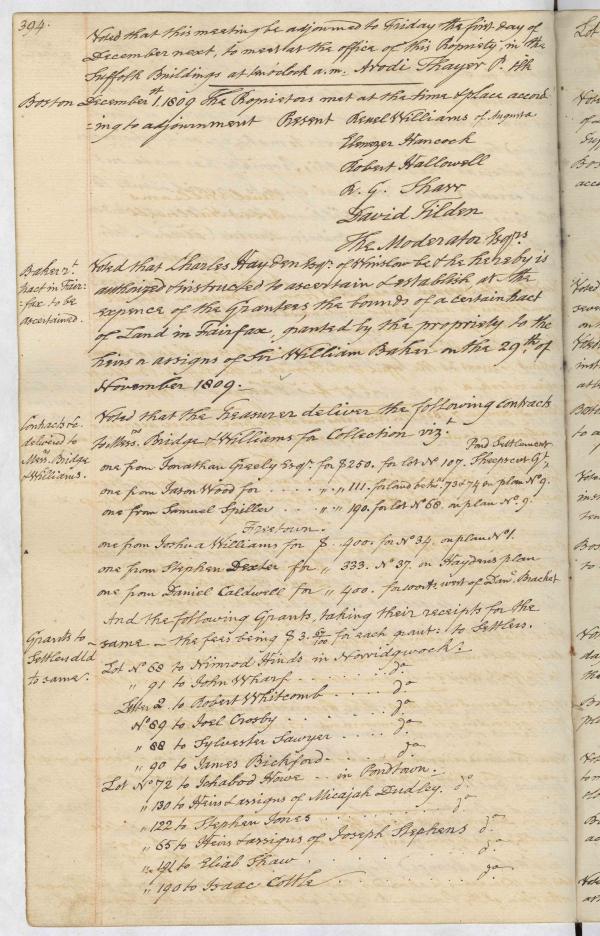 394.
Voted that this meeting be adjourned to Friday the first day of
December next, to meet at the office of this Propriety, in the
Suffolk Buildings at o'clock a.m. Arodi Thayer P. Clk
Boston December 1st, 1809 The Proprietors met at the time & place accord
=ing to adjournment Present Reuel Williams of Augusta
Ebenezer Hancock
Robert Hallowell
R. G. Shaw
David Tilden
The Moderator Esqrs.
Baker
tract in Fair=
=fax to be
ascertained.
Voted that Charles Hayden Esqr. of Winslow be & he hereby is
authorized & instructed to ascertain & establish at the
expence of the Grantees, the bounds of a certain tract
of Land in Fairfax, granted by the propriety to the
heirs or assigns of Sir William Baker on the 29th. of
November 1809.
Contracts to be
delivered to
Messrs. Bridge
& Williams.
Voted that the Treasurer deliver the following contracts
to Messrs. Bridge & Williams for Collection vizt.
Pond Settlement
one from Jonathan Greely Esqr. for $250. for lot No 107. Sheepscut Gt,
one from Jason Wood for . . . " " 111. for land betwn. 73 & 74 on plan No 9.
one from Samuel Spiller . . . " " 190. for lot No 68. on plan No. 9.
Freetown.
one from Joshua Williams for $. 400. for No 34. on plan No 1.
one from Stephen Dexter for " 333. No 37. on Hayden's plan
one from Daniel Caldwell for " 400. for west of Danl. Bracket
Grants to
Settlers dld
to same.
And the following Grants, taking their receipts for the
same – the fees being $3. for each grant: to Settlers.
Lot No 68 to Nimrod Hinds in Norridgwock:
" 91 to John Wharf . . . . . . do
Letter 2. to Robert Whitcomb . . . . do
No 89 to Joel Crosby . . . . . . do
" 88 to Sylvester Sawyer . . . . do
" 90 to James Bickford . . . . . do
Lot No 72 to Ichabod Howe . . in Pondtown.
" 130 to Heirs & assigns of Micajah Dudley. do
" 122 to Stephen Jones . . . . . . do
" 65 to Heirs & assigns of Joseph Stephens do
" 191 to Eliab Shaw . . . . . . do
" 190 to Isaac Cottle . . . . . . do